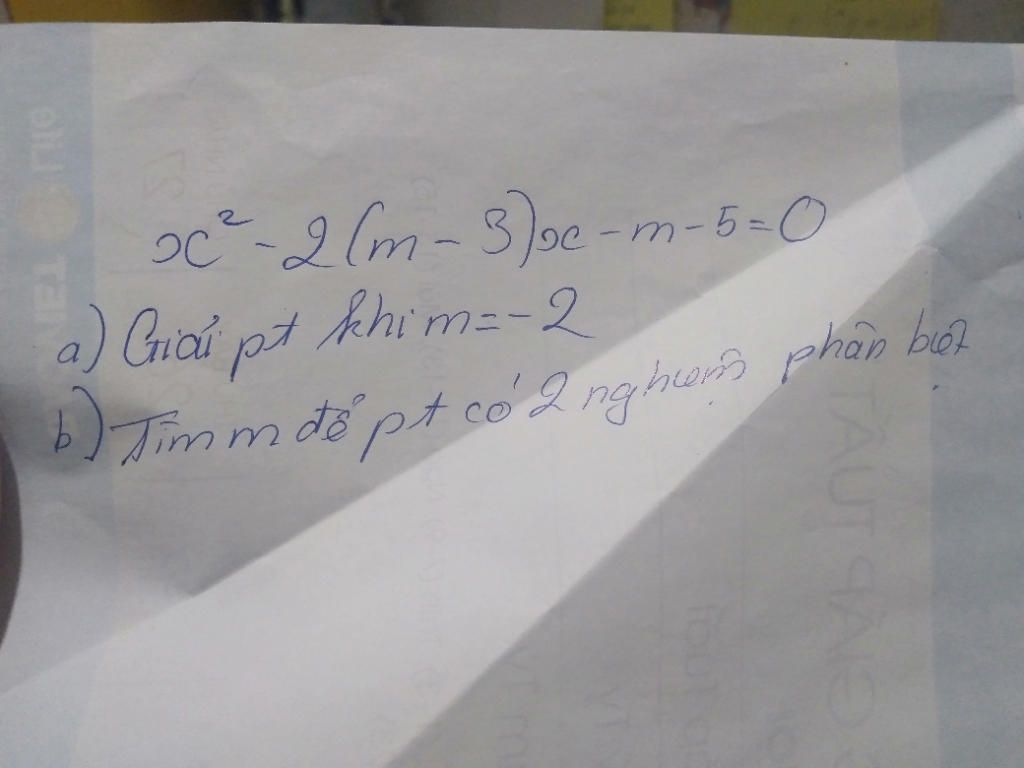 x² - 2(m - 3)x - m - 5 = 0
a) Giải pt khi m = -2
b) Tìm m để pt có 2 nghiệm phân biệt